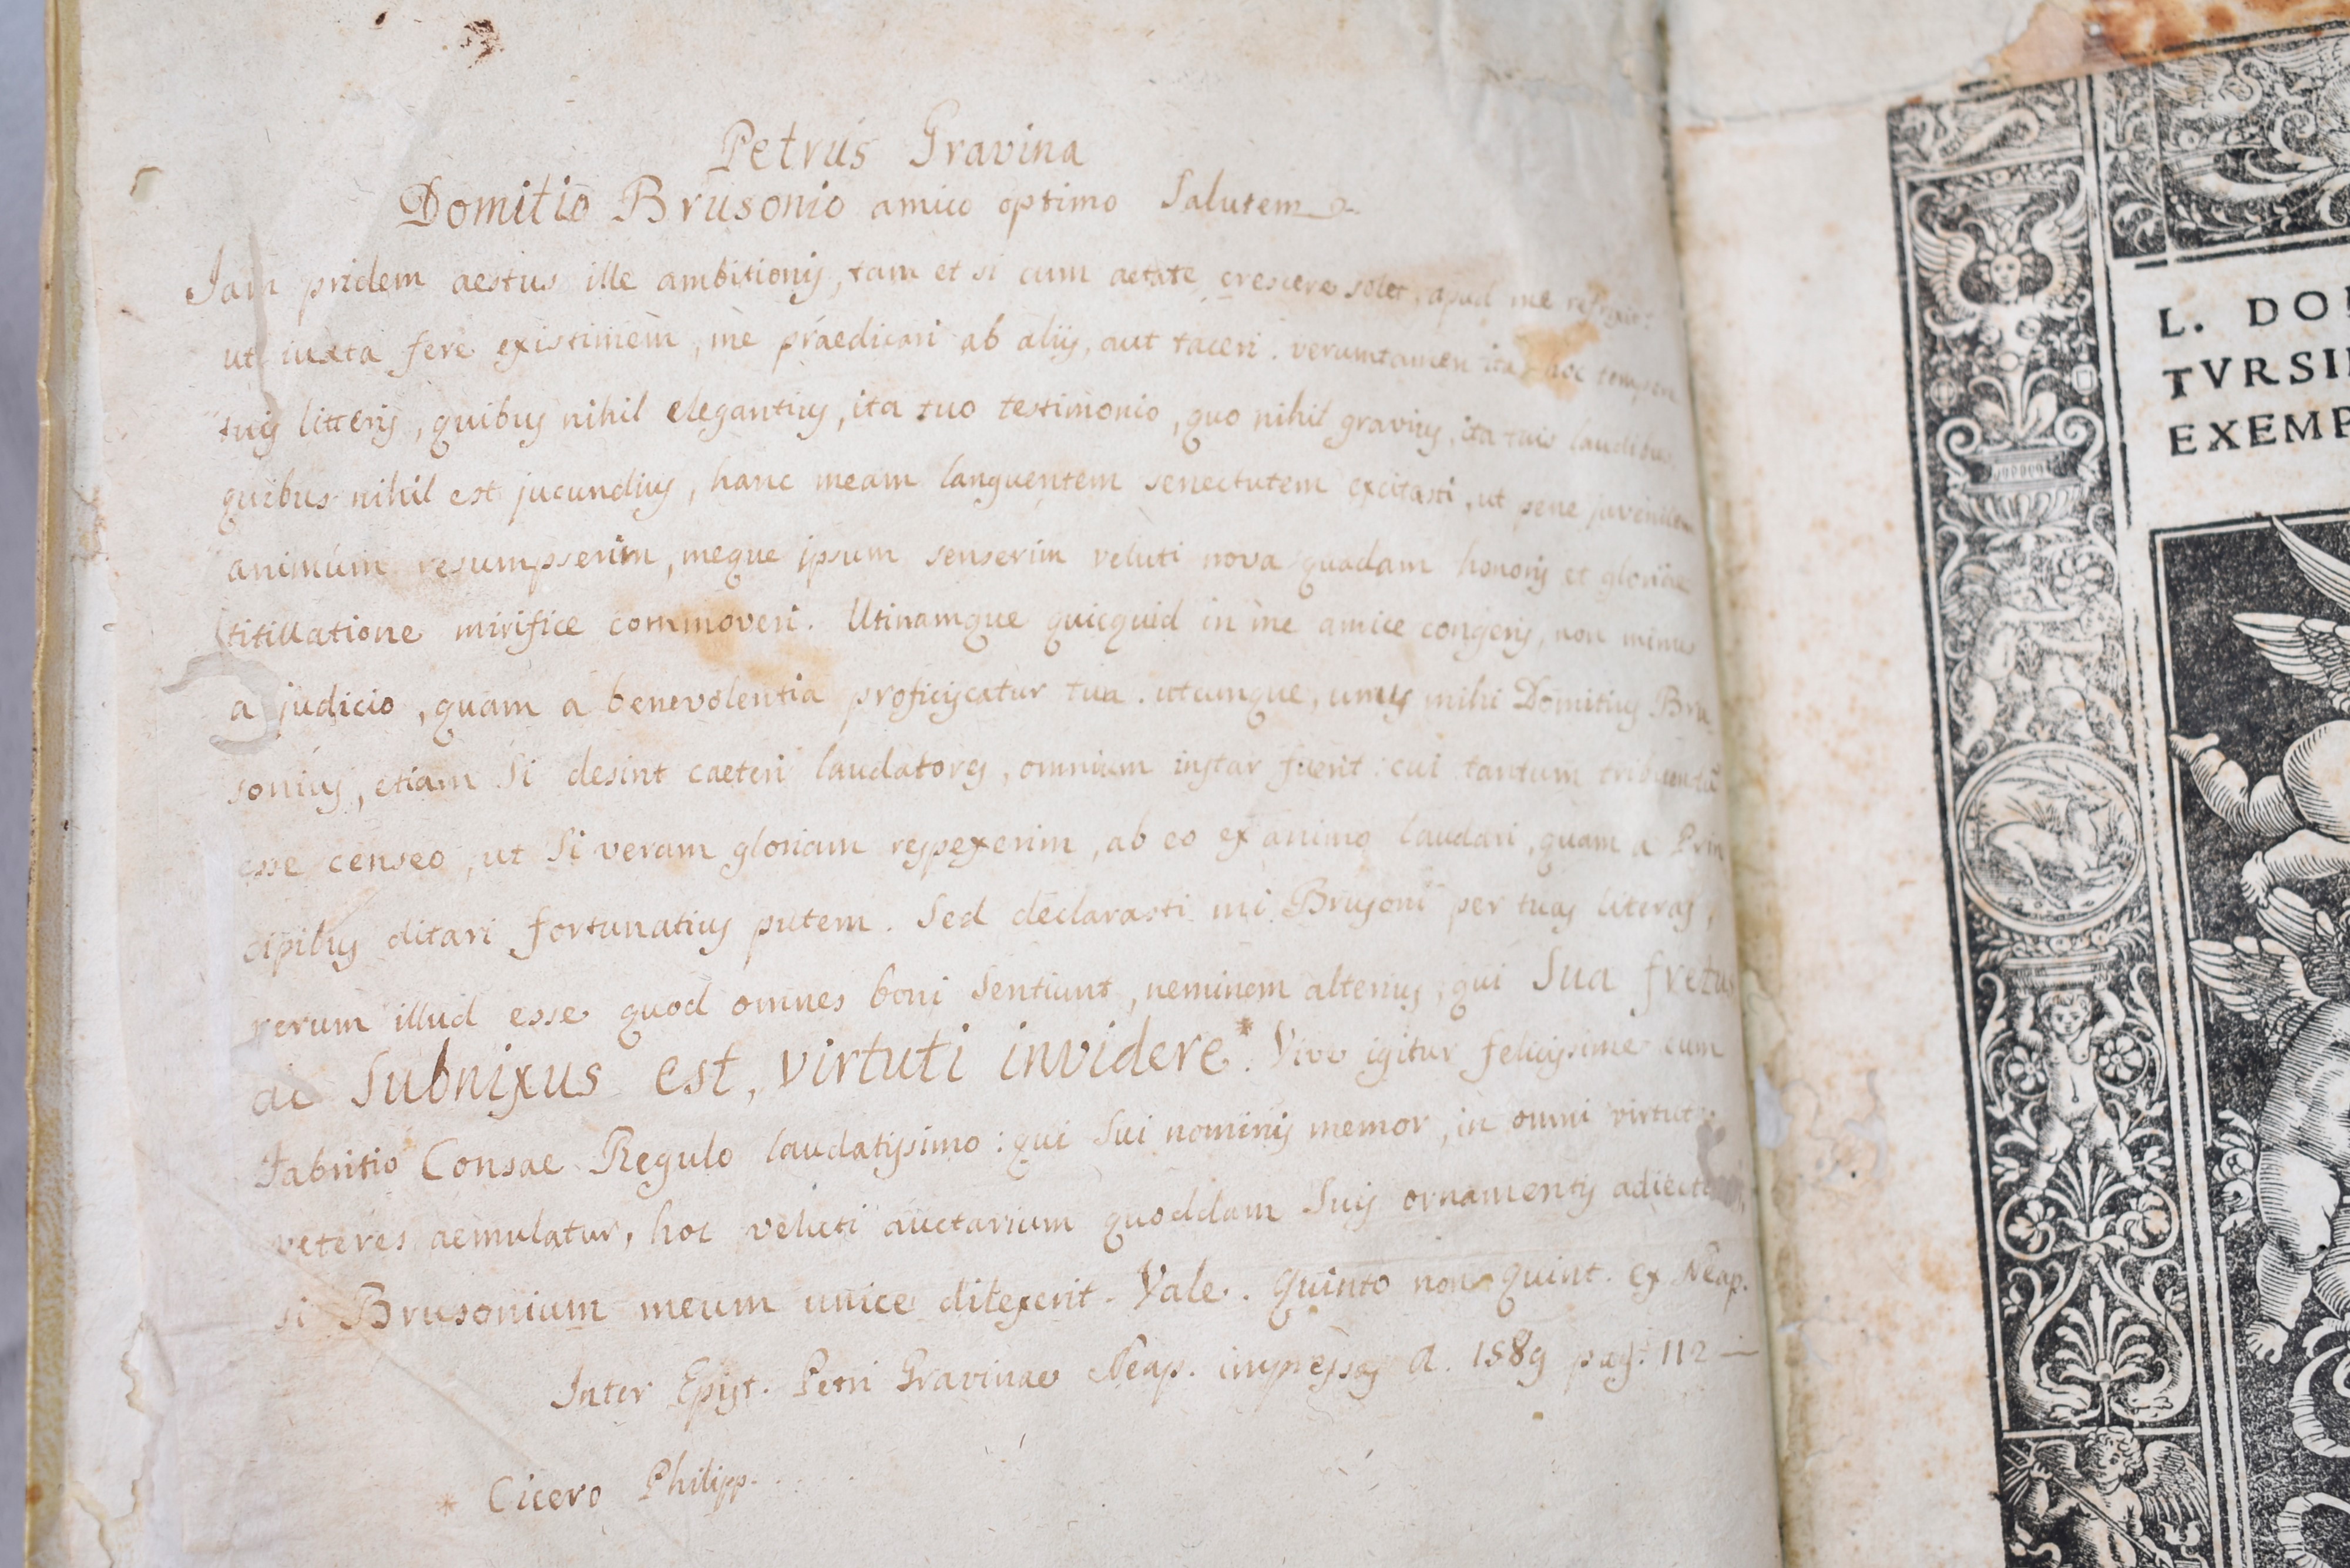 Petrus Gravina
Domitio Brusonio amico optimo Salutem
Jam pridem aestus ille ambitionis, tam et si cum aetate crescere solet, apud me refrixit:
ut iuxta fere existimem, me praedicari ab aliis, aut taceri. verumtamen ita hoc tempore
tuis litteris, quibus nihil elegantius, ita tuo testimonio, quo nihil gravius, ita tuis laudibus
quibus nihil est jucundius, hanc meam languentem senectutem excitasti, ut pene juvenilem
animum resumpserim, meque ipsum senserim veluti nova quadam honoris et gloriae
titillatione mirifice commoveri. Utinamque quicquid in me amice congeris, non minus
a judicio, quam a benevolentia proficiscatur tua. utcumque, unus mihi Domitius Bru
sonius, etiam si desint caeteri laudatores, omnium instar fuerit: cui tantum
esse censeo, ut si veram gloriam respexerim, ab eo ex animo laudari, quam a Prin
cipibus ditari fortunatius putem. Sed declarasti mi Brusoni per tuas literas,
verum illud esse quod omnes boni sentiunt, neminem alterius, qui sua fretus
ac subnixus est, virtuti invidere*. Vive igitur felicissime cum
Fabritio Consae Regulo laudatissimo: qui sui nominis memor, in omni virtute
veteres aemulatur, hoc veluti auctarium quoddam suis ornamentis
si Brusonium meum unice dilexerit. Vale. Quinto non. quint. ex Neap.
Inter Epist. Petri Gravinae Neap. impressas A. 1589 pag: 112 —
* Cicero Philipp. . . . .
L. DO
TVRSI
EXEMP